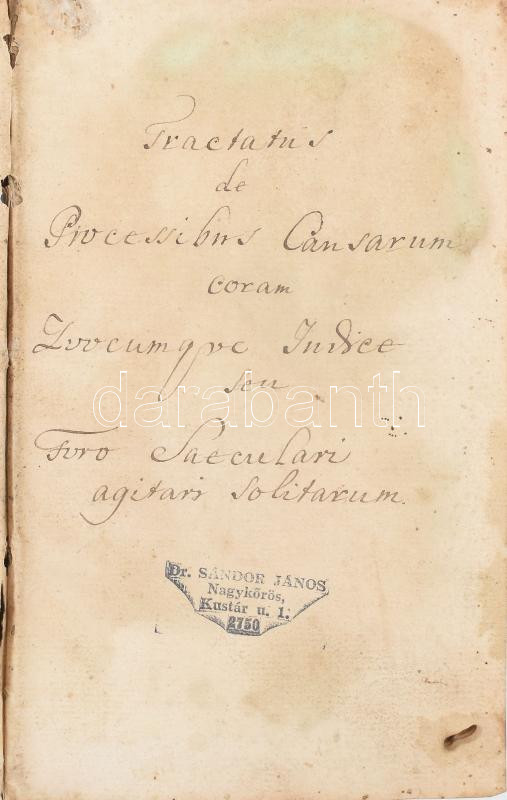 Tractatus
de
Processibus Causarum
coram
Quocumque Iudice
seu
darabanth
Foro Saeculari
agitari solitarum.
Dr. SÁNDOR JÁNOS
Nagykőrös,
Kustár u. 1.
2750